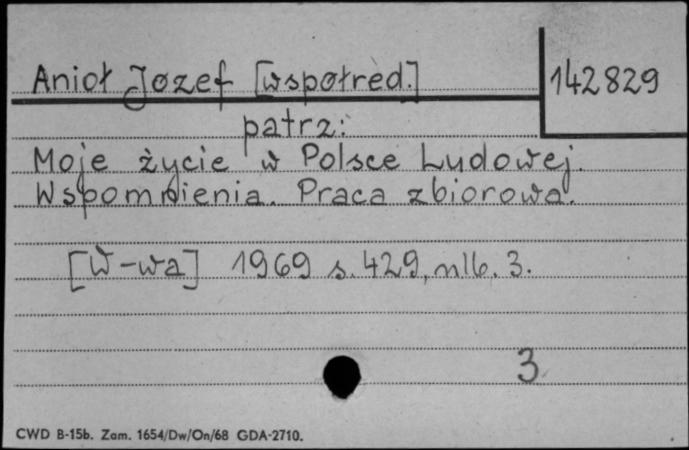 Anioł Józef [współred.]
142829
patrz:
Moje życie w Polsce Ludowej.
Wspomnienia. Praca zbiorowa.
[W-wa] 1969 s. 429, nlb. 3.
3
CWD B-15b. Zam. 1654/Dw/On/68 GDA-2710.